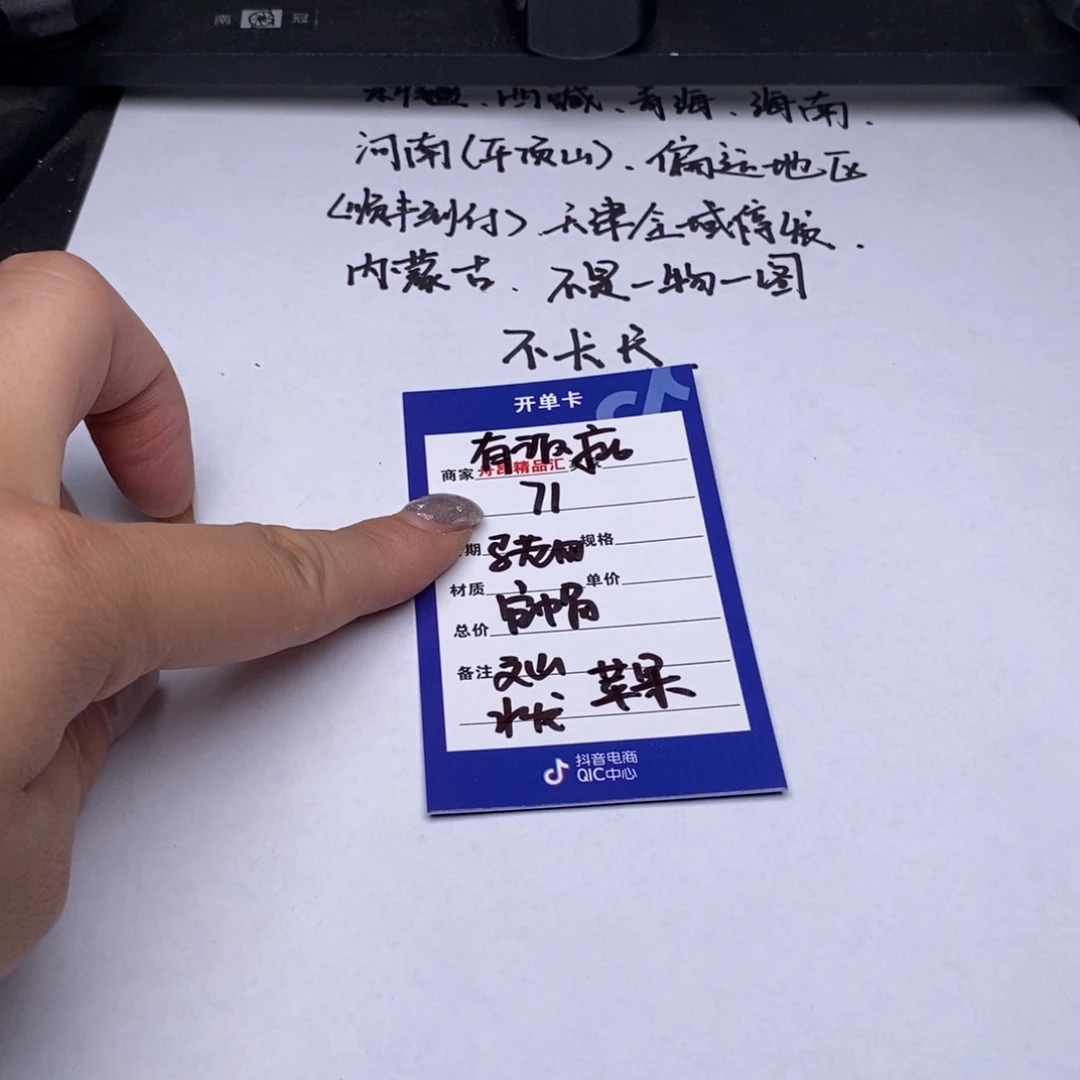 南 冠
新疆、西藏、青海、海南.
河南(平顶山)、偏远地区
〈顺丰到付〉天津全域停发.
内蒙古. 不是一物一图
不卡长.
开单卡
有瑕疵
商家 舟昂精品汇
71
期 规格
材质 单价
总价
备注 文山 苹果
抖音电商
QIC中心